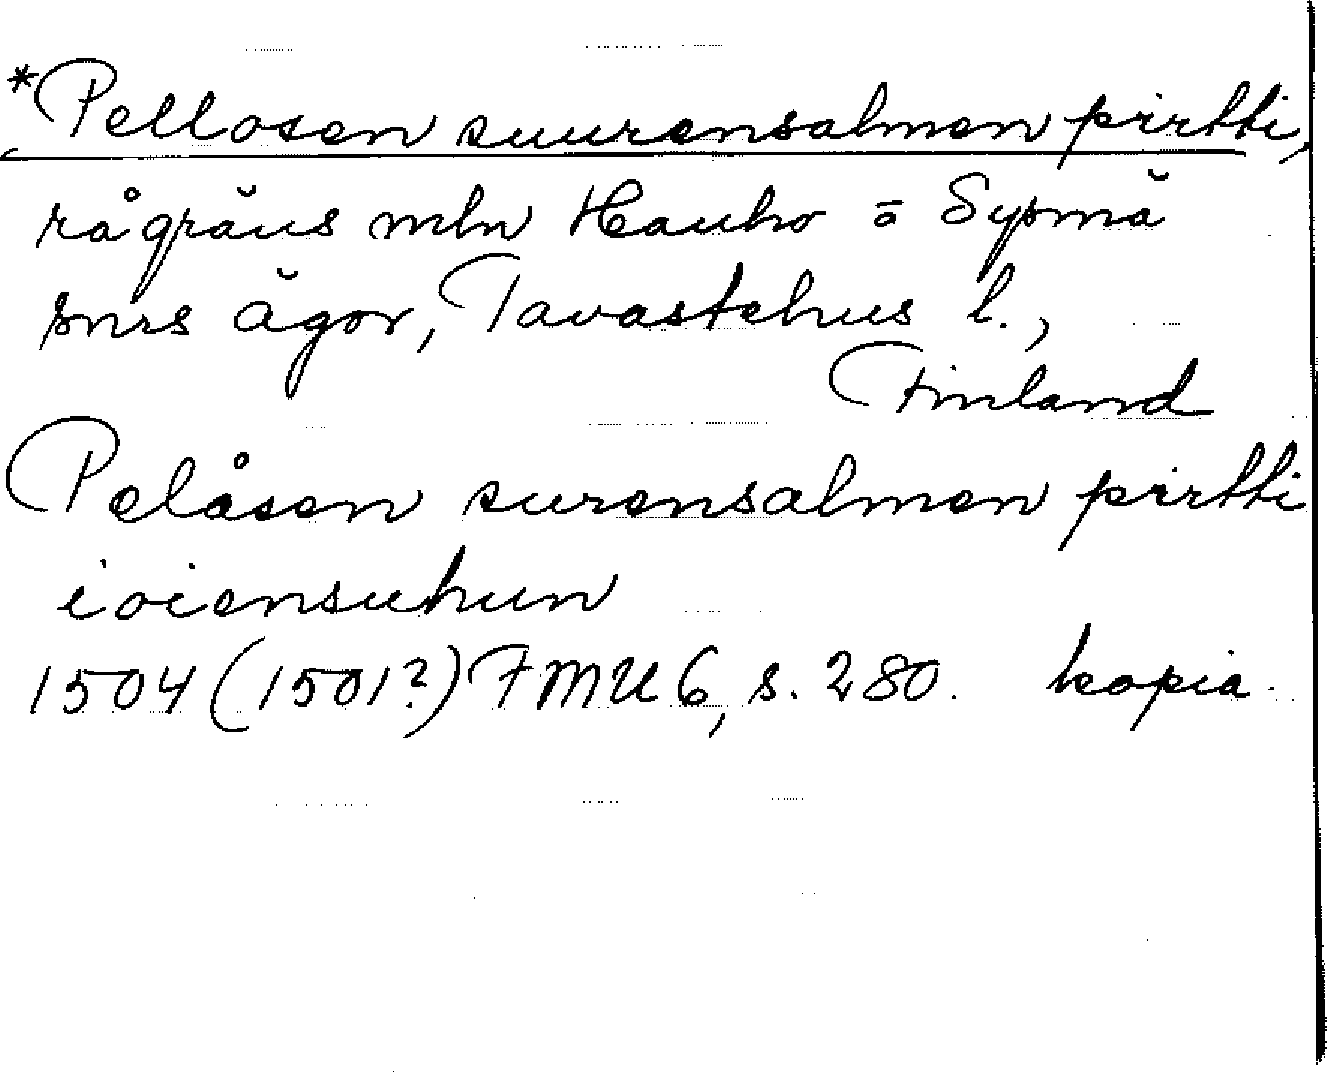 *Pellosen suurensalmen pirtti,
rågräns mln Hauho o Sysmä
snrs ägor, Tavastehus l.,
Finland
Pelåsen surensalmen pirtti
ioiensuhun
1504 (1501?) FMU 6, s. 280. kopia.